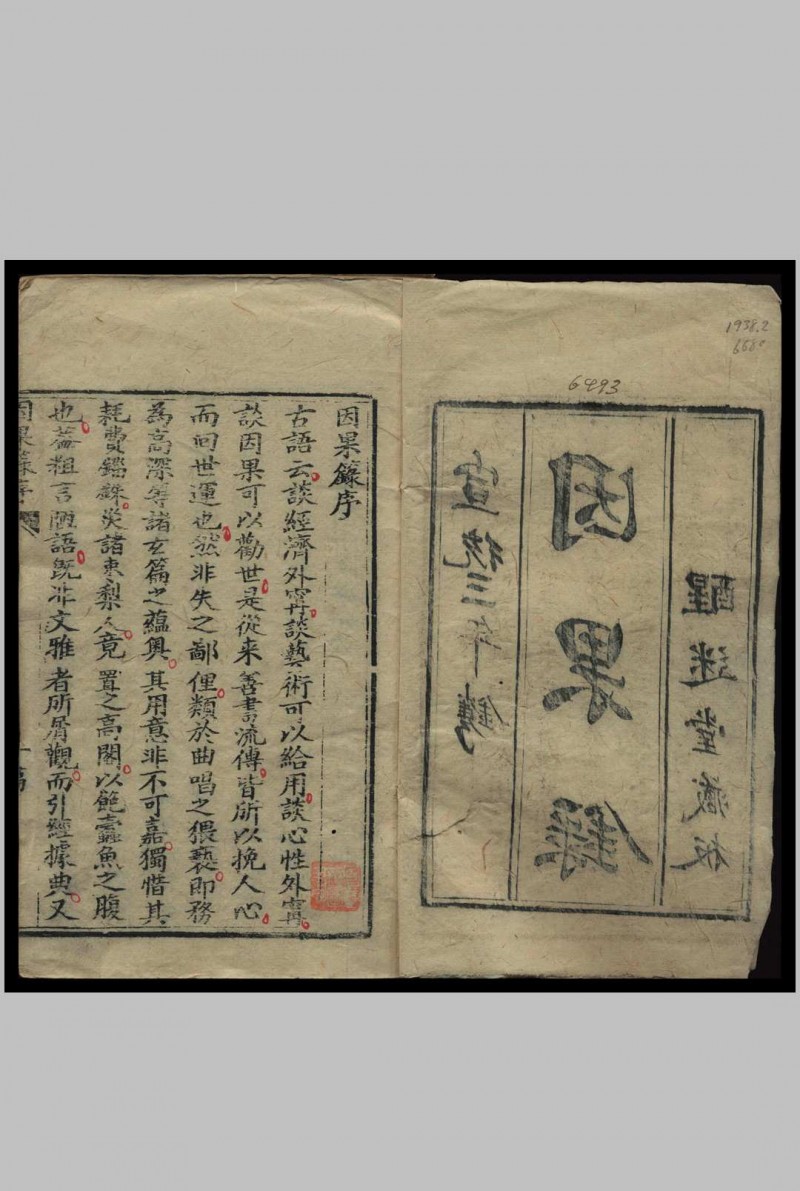 1938.2
6493
宣統三年鐫
因果錄
醒迷堂藏板
因果籙序
古語云談經濟外寗談藝術可以給用談心性外寗
談因果可以勸世是從來善書流傳皆所以挽人心
而囘世運也然非失之鄙俚類於曲唱之猥褻即務
為高深等諸玄篇之蘊奥其用意非不可嘉獨惜其
耗費錙銖災諸棗梨人竟置之高閣以飽蠹魚之腹
也蓋粗言陋語既非文雅者所屑觀而引經據典又
因果籙序